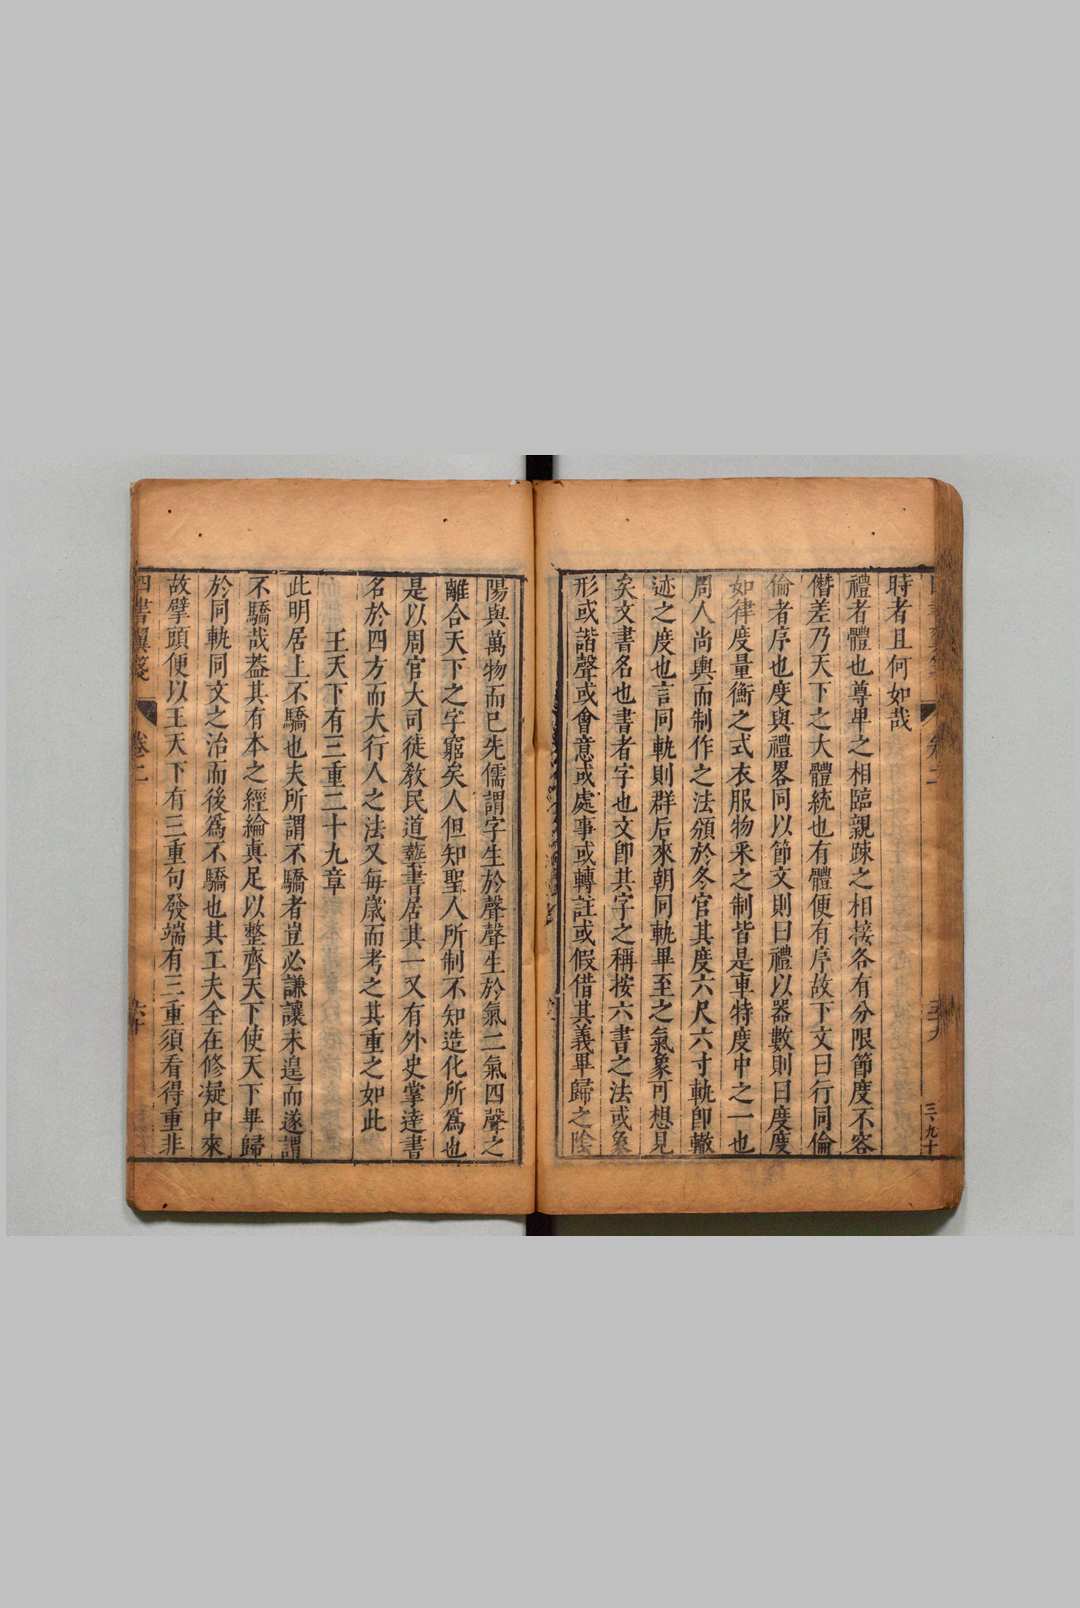 時者且何如哉
禮者體也尊卑之相臨親踈之相接各有分限節度不容
僭差乃天下之大體統也有體便有序故下文曰行同倫
倫者序也度與禮畧同以節文則曰禮以器數則曰度度
如律度量衡之式衣服物采之制皆是車特度中之一也
周人尚輿而制作之法頒於冬官其度六尺六寸軌卽轍
迹之度也言同軌則群后來朝同軌畢至之氣象可想見
矣文書名也書者字也文卽其字之稱按六書之法或象
形或諧聲或會意或處事或轉註或假借其義畢歸之陰
陽與萬物而已先儒謂字生於聲聲生於氣二氣四聲之
離合天下之字窮矣人但知聖人所制不知造化所爲也
是以周官大司徒敎民道藝書居其一又有外史掌達書
名於四方而大行人之法又每歲而考之其重之如此
王天下有三重二十九章
此明居上不驕也夫所謂不驕者豈必謙讓未遑而遂謂
不驕哉葢其有本之經綸眞足以整齊天下使天下畢歸
於同軌同文之治而後爲不驕也其工夫全在修凝中來
故擘頭便以王天下有三重句發端有三重須看得重非
四書翼箋
卷二
六十